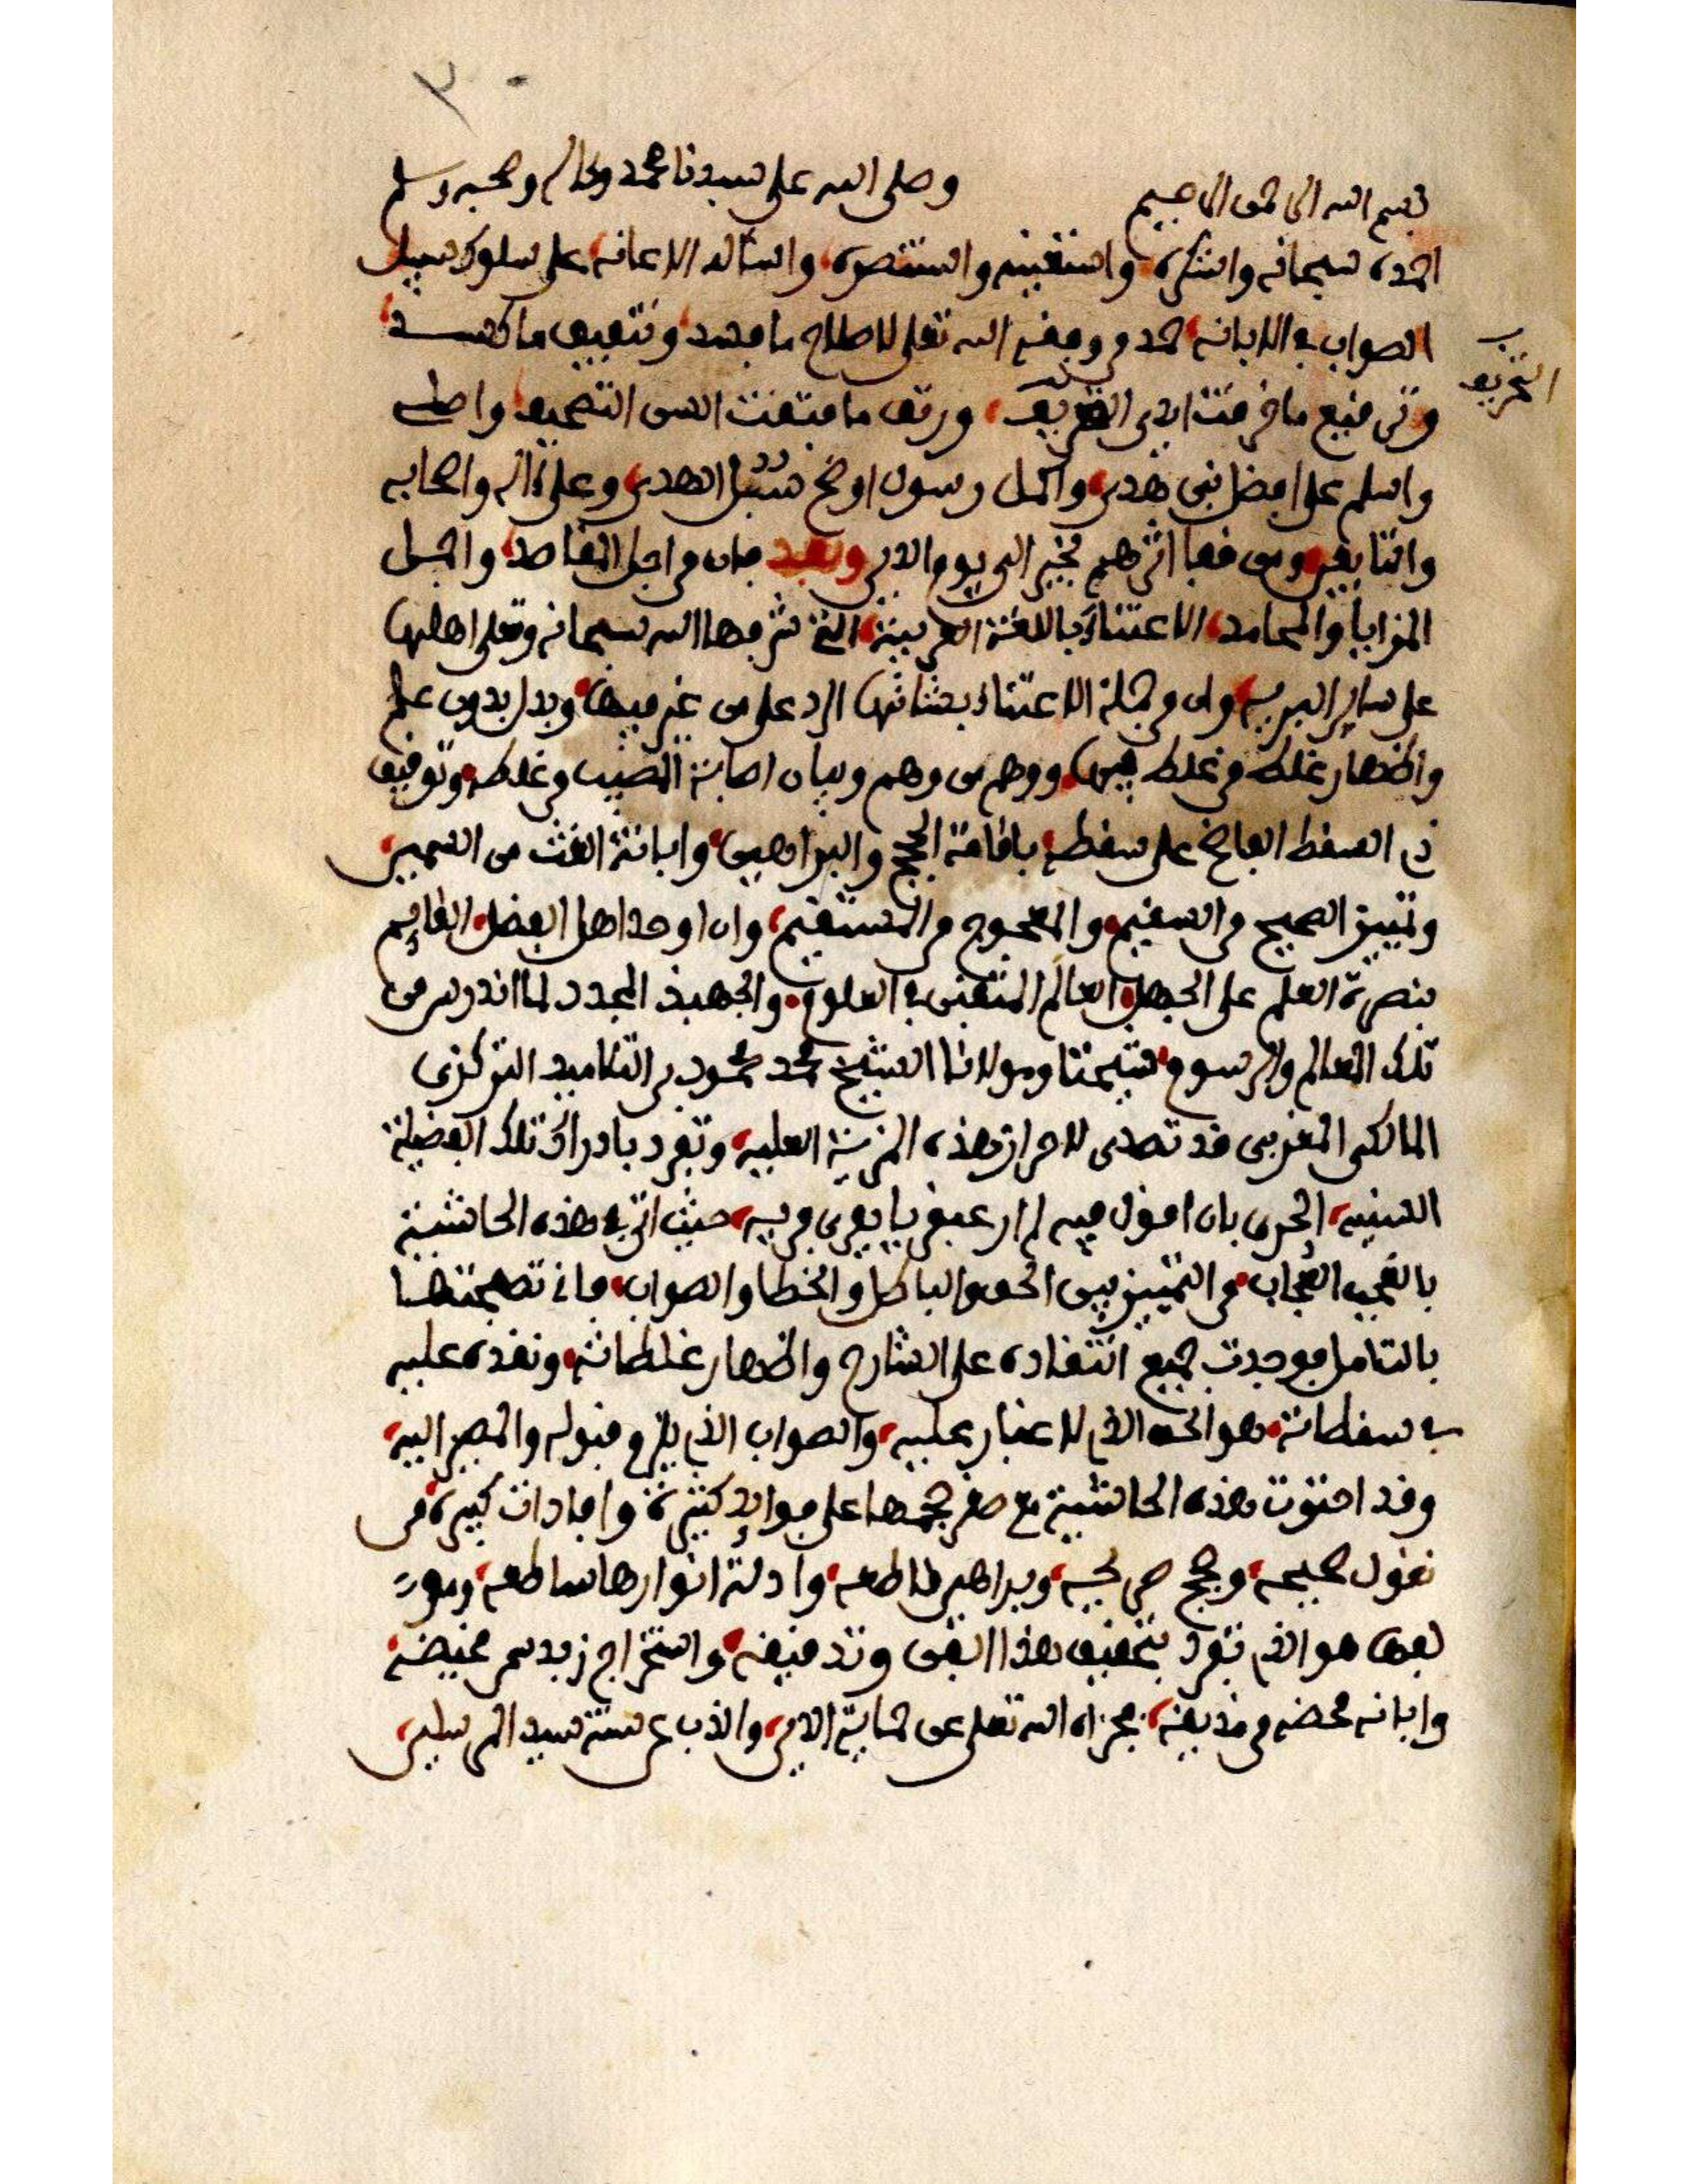 بسم الله الرحمن الرحيم وصلى الله على سيدنا محمد وءاله وصحبه وسلم
احمده سبحانه واشكره واستعينه واستنصره واسأله الاعانه على سلوك سبيل
الصواب في الابانه حمد من وفقه الله تعلى لاصلاح ما فسد وتنفيق ما كسد
وترقيع ما خرقت ايدى التحريف ورتق ما فتقت السن التصحيف واصلى
التحريف
واسلم على افضل نبى هدى واكمل رسول اوضح سبل الهدى وعلى ءاله واصحابه
والتابعين ومن قفا اثرهم بخير الى يوم الدين وبعد فان من اجل المقاصد واجمل
المزايا والمحامد الاعتناء باللغة العربية التى شرفها الله سبحانه وتعلى واهلها
على ساير البريه وان من جملة الاعتناء بشانها الرد على من غير فيها وبدل بدون علم
واظهار غلط من غلط فيها ووهم من وهم وبيان اصابة المصيب من غلطه وتوقيف
ذى السقط الفاضح على سقطه باقامة الحجج والبراهين وابانة الغث من السمين
وتمييز الصحيح من السقيم والمعوج من المستقيم وان اوحد اهل الفضل القايم
بنصرة العلم على الجهل العالم المتفنن في العلوم والجهبذ المجدد لما اندرس من
تلك المعالم والرسوم شيخنا ومولانا الشيخ محمد محمود بن التلاميد التركزى
المالكى المغربى قد تصدى لاحراز هذه المزية العليه وتفرد بادراك تلك الفضيلة
السنيه الحرى بان اقول فيه لم ار عبقريا يفرى فريه حيث اتى في هذه الحاشية
بالعجب العجاب من التمييز بين الحق والباطل والخطا والصواب فانى تصفحتها
بالتامل فوجدت جميع انتقاده على الشارح واظهار غلطاته ونقده عليه
في سقطاته هو الحق الذى لا غبار عليه والصواب الذى يلزم قبوله والمصير اليه
وقد احتوت هذه الحاشية مع صغر حجمها على فوايد كثيرة وافادات كبيرة من
نقول صحيحه وحجج صريحه وبراهين قاطعه وادلة انوارها ساطعه ومولـ
فها هو الذى تفرد بتحقيق هذا الفن وتدقيقه واستخراج زبده من مخيضه
وابانه محضه من مذيقه فجزاه الله تعلى عن حماية الدين والذب عن سنة سيد المرسلين